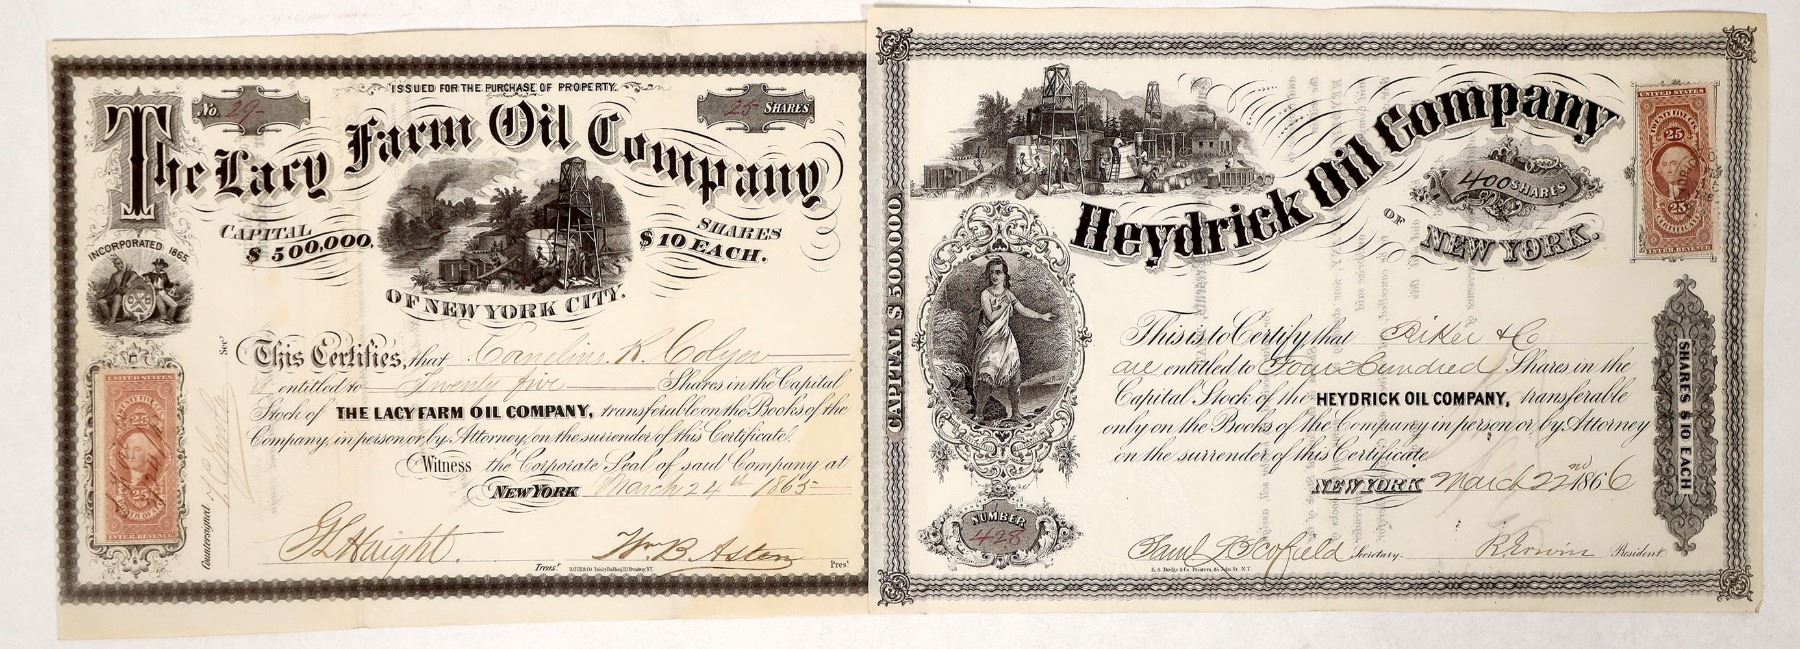 ISSUED FOR THE PURCHASE OF PROPERTY.
No. 29
25 SHARES
The Lacy Farm Oil Company
CAPITAL $500,000,
SHARES $10 EACH.
OF NEW YORK CITY.
INCORPORATED 1865.
This Certifies, that Cornelius R. Colyer
is entitled to Twenty five Shares in the Capital
Stock of THE LACY FARM OIL COMPANY, transferable on the Books of the
Company, in person or by Attorney, on the surrender of this Certificate.
Witness the Corporate Seal of said Company at
NEW YORK March 24th 1865
Countersigned
Secy
G L Haight Treast
Wm B. Asten Prest
HATCH & CO. Trinity Building, 111 Broadway, N.Y.
UNITED STATES
25
25
INTER. REVENUE
Heydrick Oil Company
OF NEW YORK.
400 SHARES
CAPITAL $500,000.
SHARES $10 EACH
This is to Certify that Riker & Co
are entitled to Four Hundred Shares in the
Capital Stock of the HEYDRICK OIL COMPANY, transferable
only on the Books of the Company in person or by Attorney
on the surrender of this Certificate
NEW YORK March 22nd 1866
NUMBER
428
Saml Scofield Secretary.
R Irwin President
E. S. Dodge & Co. Printers, 84 John St. N.Y.
UNITED STATES
TWENTY FIVE CTS.
25
25
CERTIFICATE
INTER. REVENUE